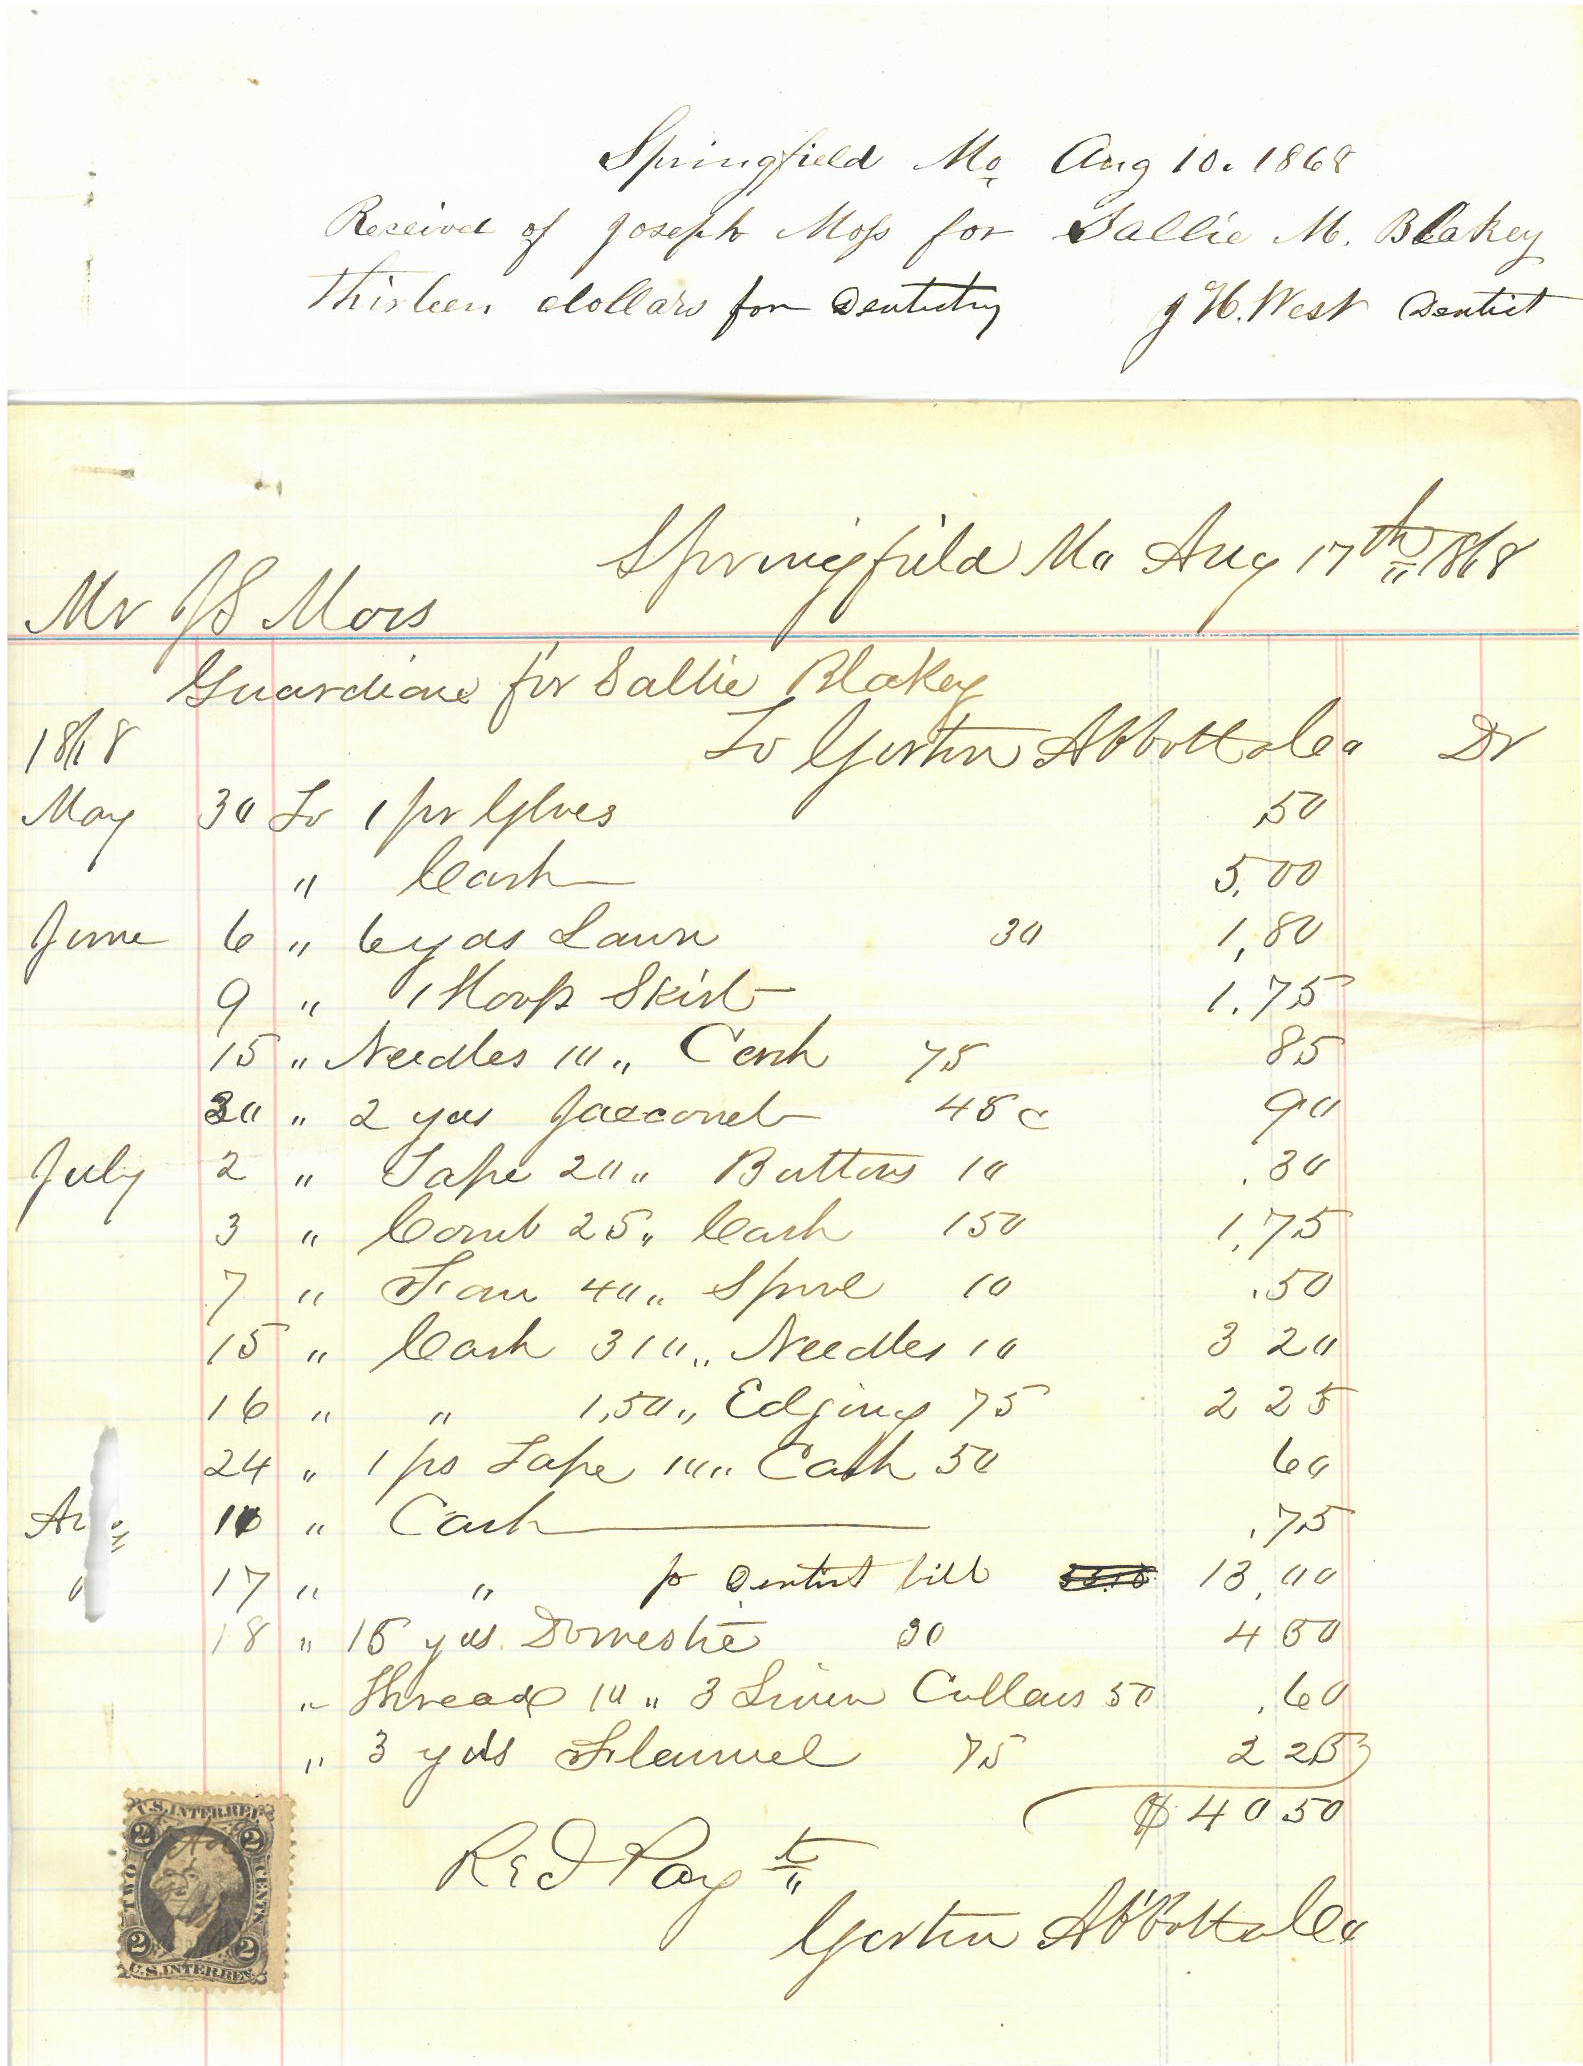 Springfield Mo Aug 10. 1868
Received of Joseph Moss for Sallie M. Blakey
Thirteen dollars for Dentistry J H. West Dentist
Springfield Mo Aug 17th 1868
Mr J S Moss
Guardian for Sallie Blakey
1868 To Abbott & Co Dr
May 30 To 1 pr Gloves .50
" Cash 5.00
June 6 " 6 yds Lawn 30 1,80
9 " 1 Hoop Skirt 1.75
15 " Needles 10 " Cash 75 85
30 " 2 yds Jacconet 45c 90
July 2 " Tape 20 " Buttons 10 .30
3 " Comb 25 " Cash 150 1.75
7 " Fan 40 " Spool 10 .50
15 " Cash 310 " Needles 10 3 20
16 " " 1,50 " Edging 75 2 25
24 " 1 ps Tape 10 " Cash 50 60
" Cash .75
17 " " for Dentist bill 13.00
18 " 15 yds Domestic 30 4 50
" Thread 10 " 3 Linen Collars 50 .60
" 3 yds Flannel 75 2 25
$40 50
Recd Payt
Abbott & Co
U.S. INTER. REV.
2 2
TWO CENTS
2 2
U.S. INTER. REV.